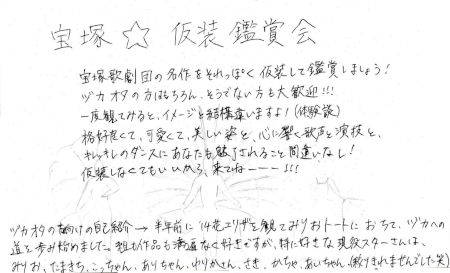 宝塚☆仮装鑑賞会
宝塚歌劇団の名作をそれっぽく仮装して鑑賞しましょう!
ヅカオタの方はもちろん、そうでない方も大歓迎!!!
一度観てみると、イメージと結構違いますよ!(体験談)
格好良くて、可愛くて、美しい姿と、心に響く歌声と演技と、
キレッキレのダンスにあなたも魅了されること間違いなし!
仮装しなくてもいいから、来てねーーー!!!
ヅカオタの方向けの自己紹介→半年前に'14花エリザを観てみりおトートにおちて、ヅカへの
道を歩み始めました。組も作品も満遍なく好きですが、特に好きな現役スターさんは、
みりお、たまきち、こっちゃん、ありちゃん、ゆりかさん、さき、かちゃ、あいちゃん(絞りきれませんでした笑)